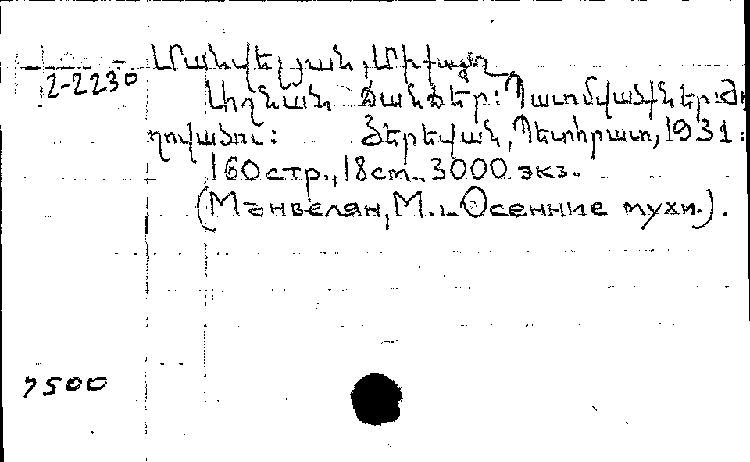 2-2230 Մանվելյան, Միքայել
Աշնան ճանճեր: Պատմվածքների ժո
ղովածու: Յերեվան, Պետհրատ, 1931:
160 стр., 18 cm. 3000 экз.
(Манвелян, М. - Осенние мухи.).
7500